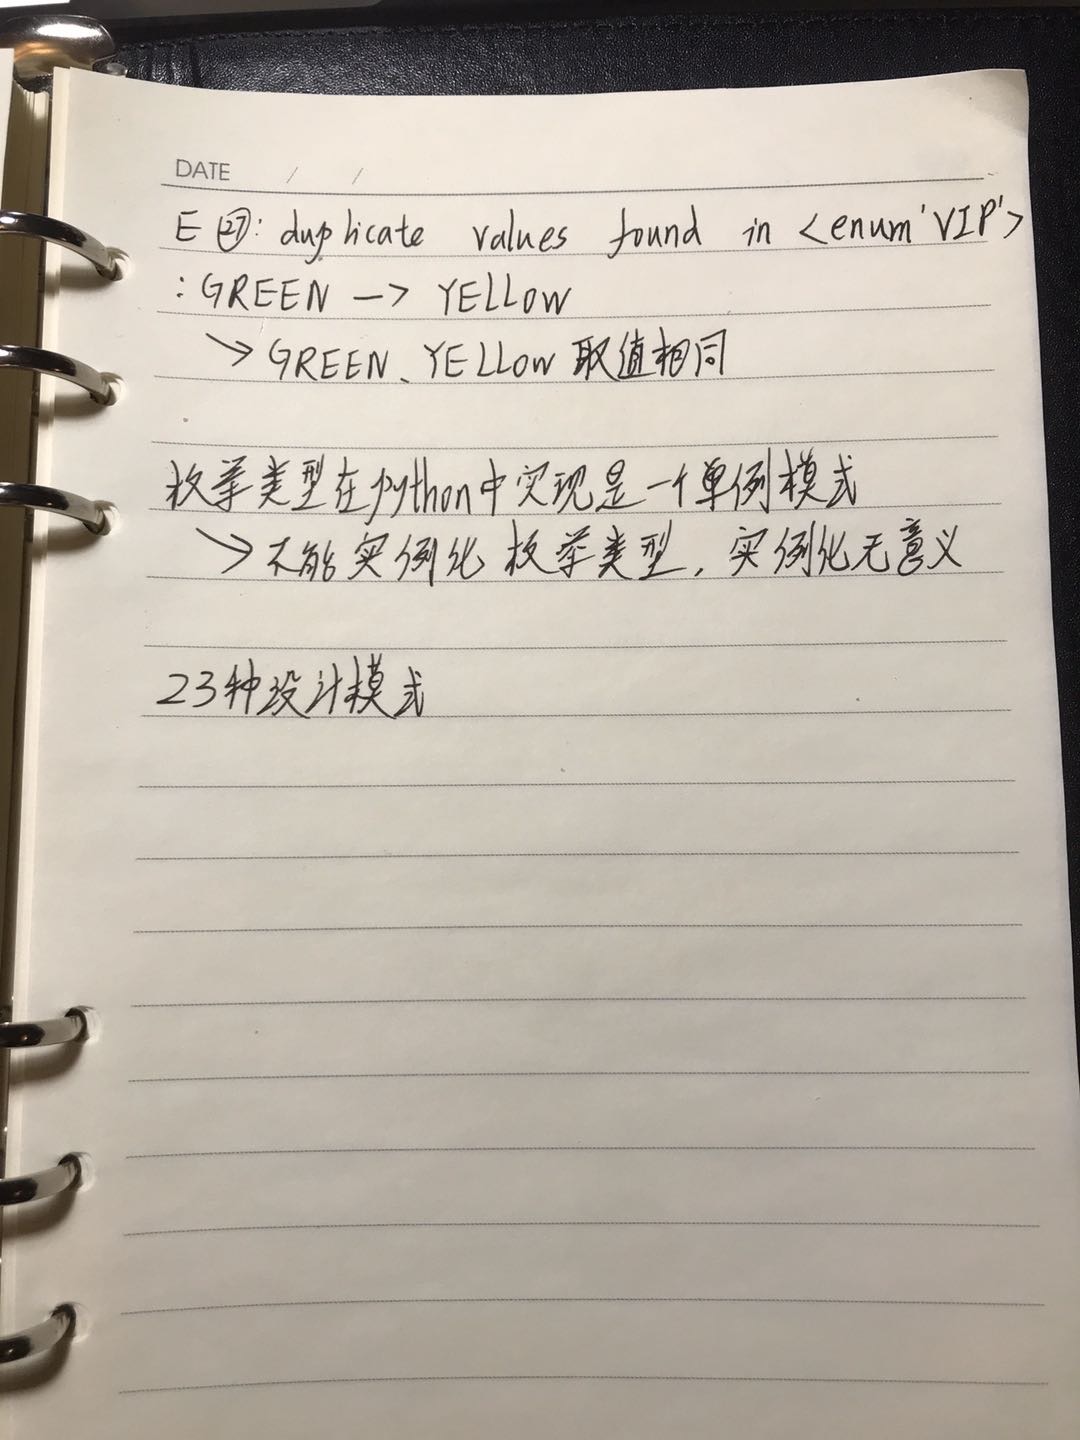 DATE / /
E㉗: duplicate values found in <enum'VIP'>
:GREEN —> YELLOW
↘ GREEN、YELLOW取值相同
枚举类型在python中实现是一个单例模式
↘ 不能实例化 枚举类型，实例化无意义
23种设计模式